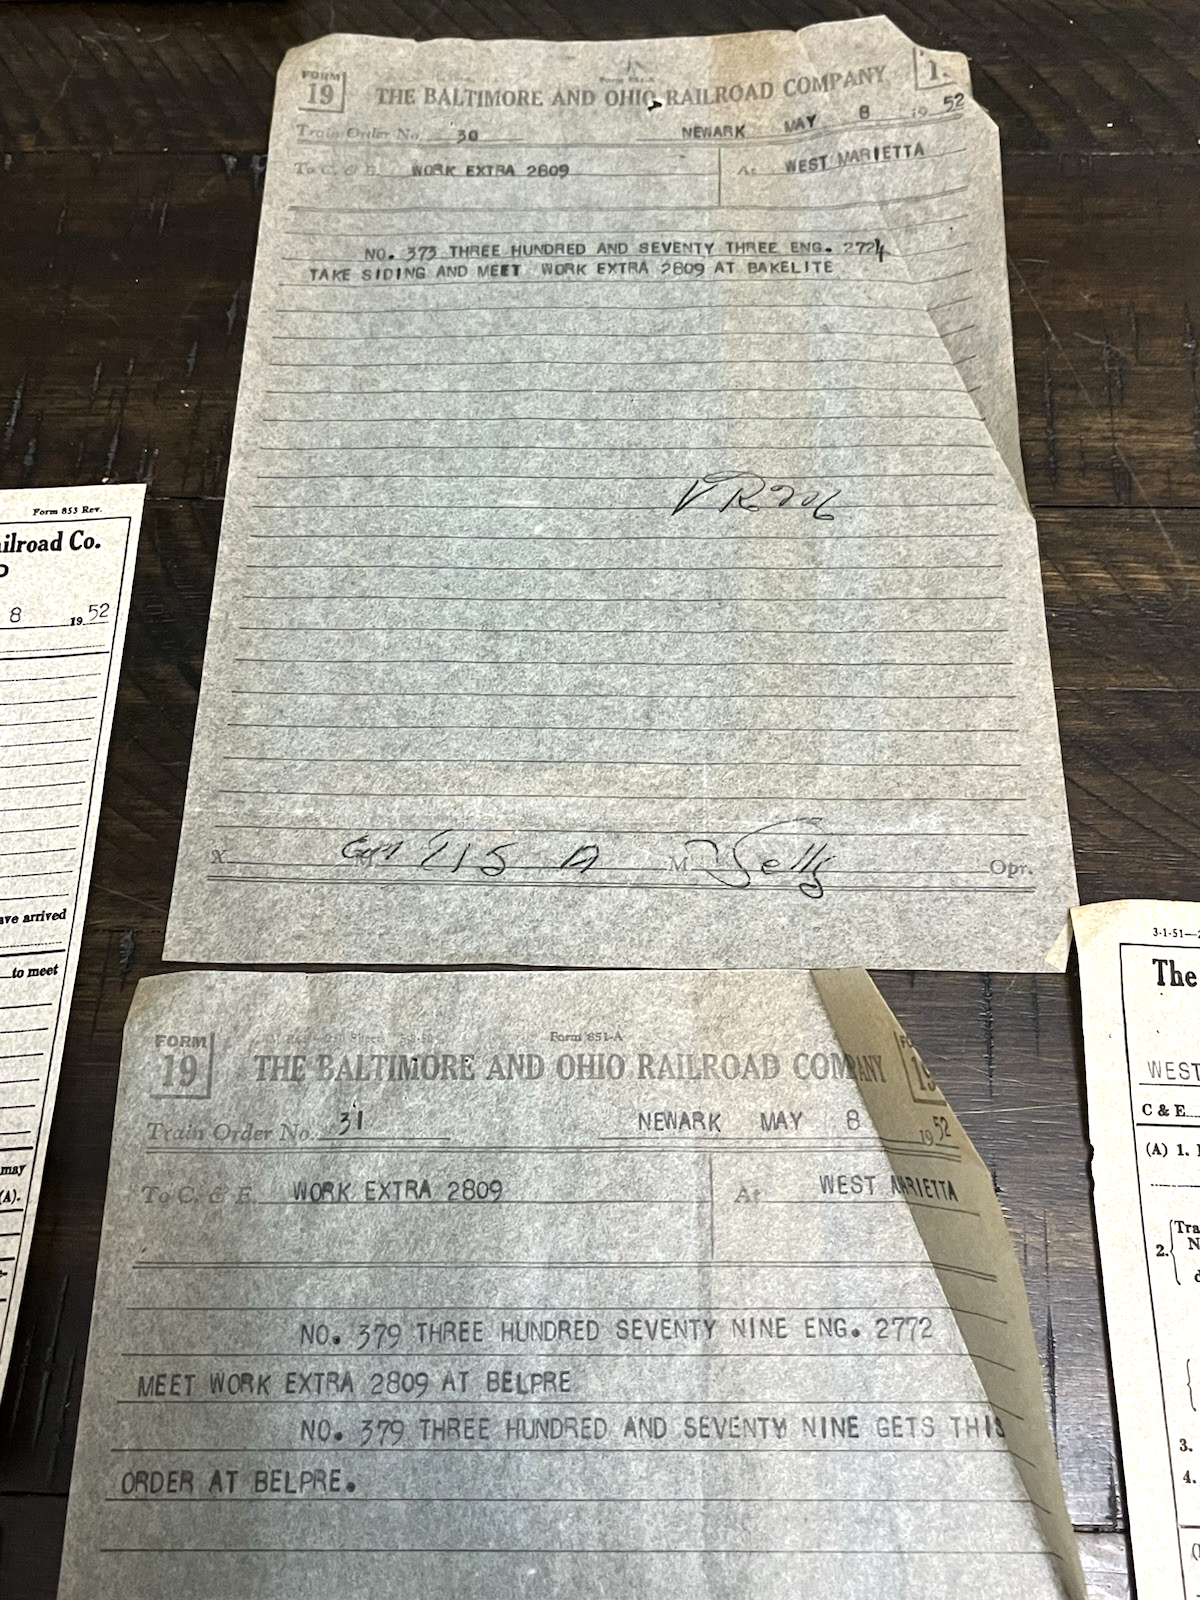 FORM
19
Form 851-A
THE BALTIMORE AND OHIO RAILROAD COMPANY
Train Order No. 30 NEWARK MAY 8 19 52
To C. & E. WORK EXTRA 2809 At WEST MARIETTA
NO. 373 THREE HUNDRED AND SEVENTY THREE ENG. 2724
TAKE SIDING AND MEET WORK EXTRA 2809 AT BAKELITE
X M M Opr.
Form 853 Rev.
ailroad Co.
8 19 52
ave arrived
to meet
may
(A).
FORM
19
Form 851-A
THE BALTIMORE AND OHIO RAILROAD COMPANY
FO
19
Train Order No. 31 NEWARK MAY 8 19 52
To C. & E. WORK EXTRA 2809 At WEST MARIETTA
NO. 379 THREE HUNDRED SEVENTY NINE ENG. 2772
MEET WORK EXTRA 2809 AT BELPRE
NO. 379 THREE HUNDRED AND SEVENTY NINE GETS THIS
ORDER AT BELPRE.
3-1-51—
The
WEST
C & E
(A) 1.
2. Tra
N
d
3.
4.